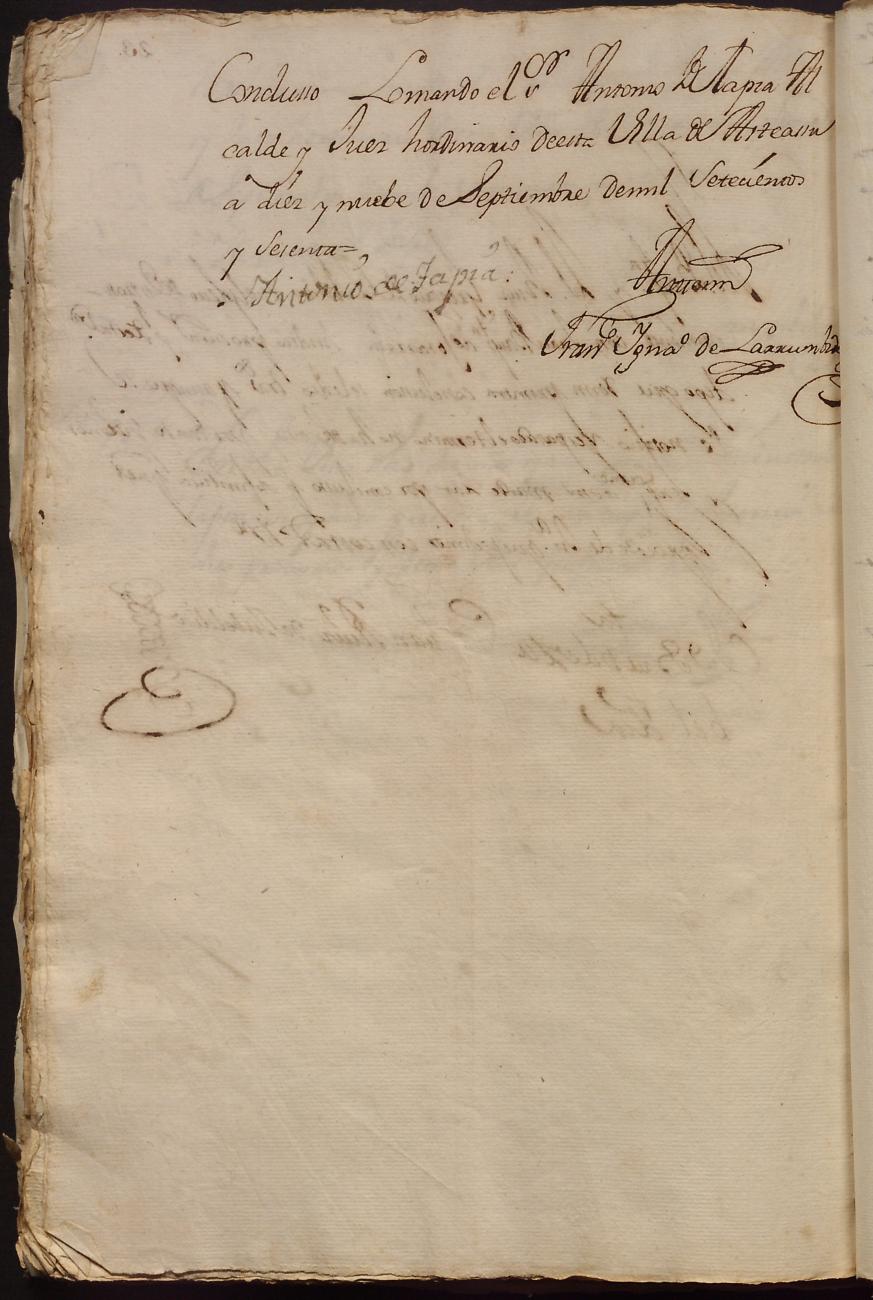 Conclusso Lomando el Sor Antonio de Tapia Al
calde y Juez hordinario deesta Villa de Asteassu
a diez y nuebe de Septiembre demil Setecientos
y Sesenta=
Antonio de Tapia:
Antemi
Franco Ignao de Larrumbide